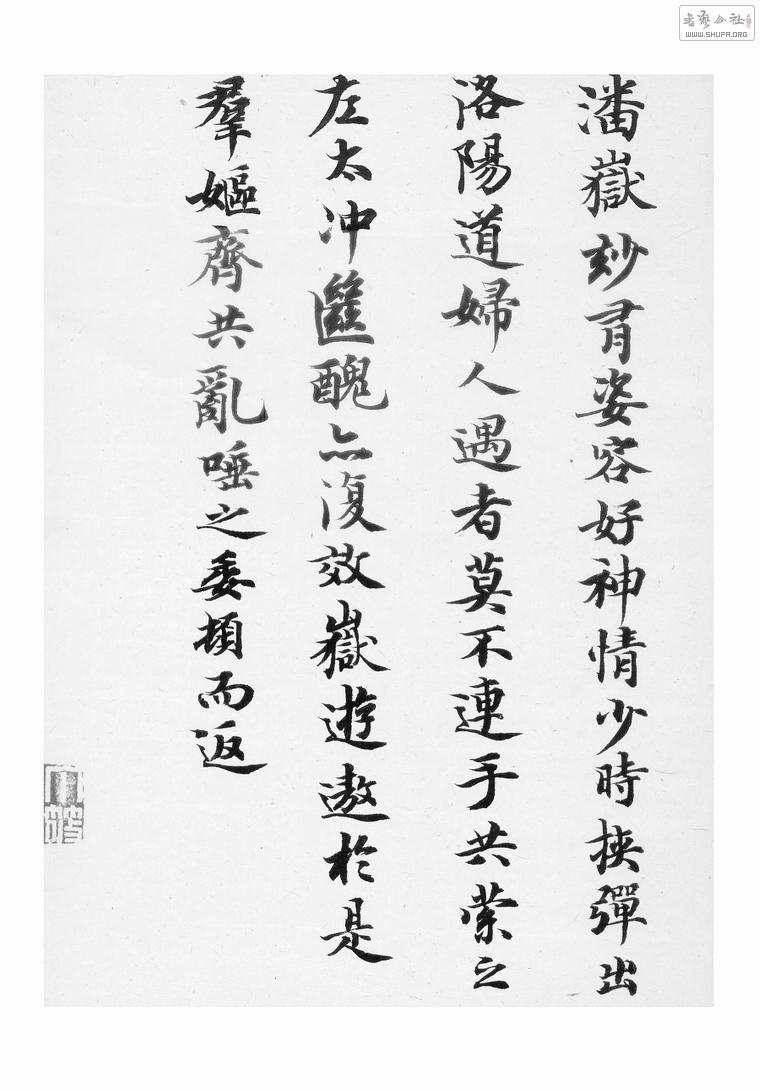 潘嶽妙有姿容好神情少時挾彈出
洛陽道婦人遇者莫不連手共縈之
左太冲絕醜亦復效嶽遊遨於是
羣嫗齊共亂唾之委頓而返
WWW.SHUFA.ORG